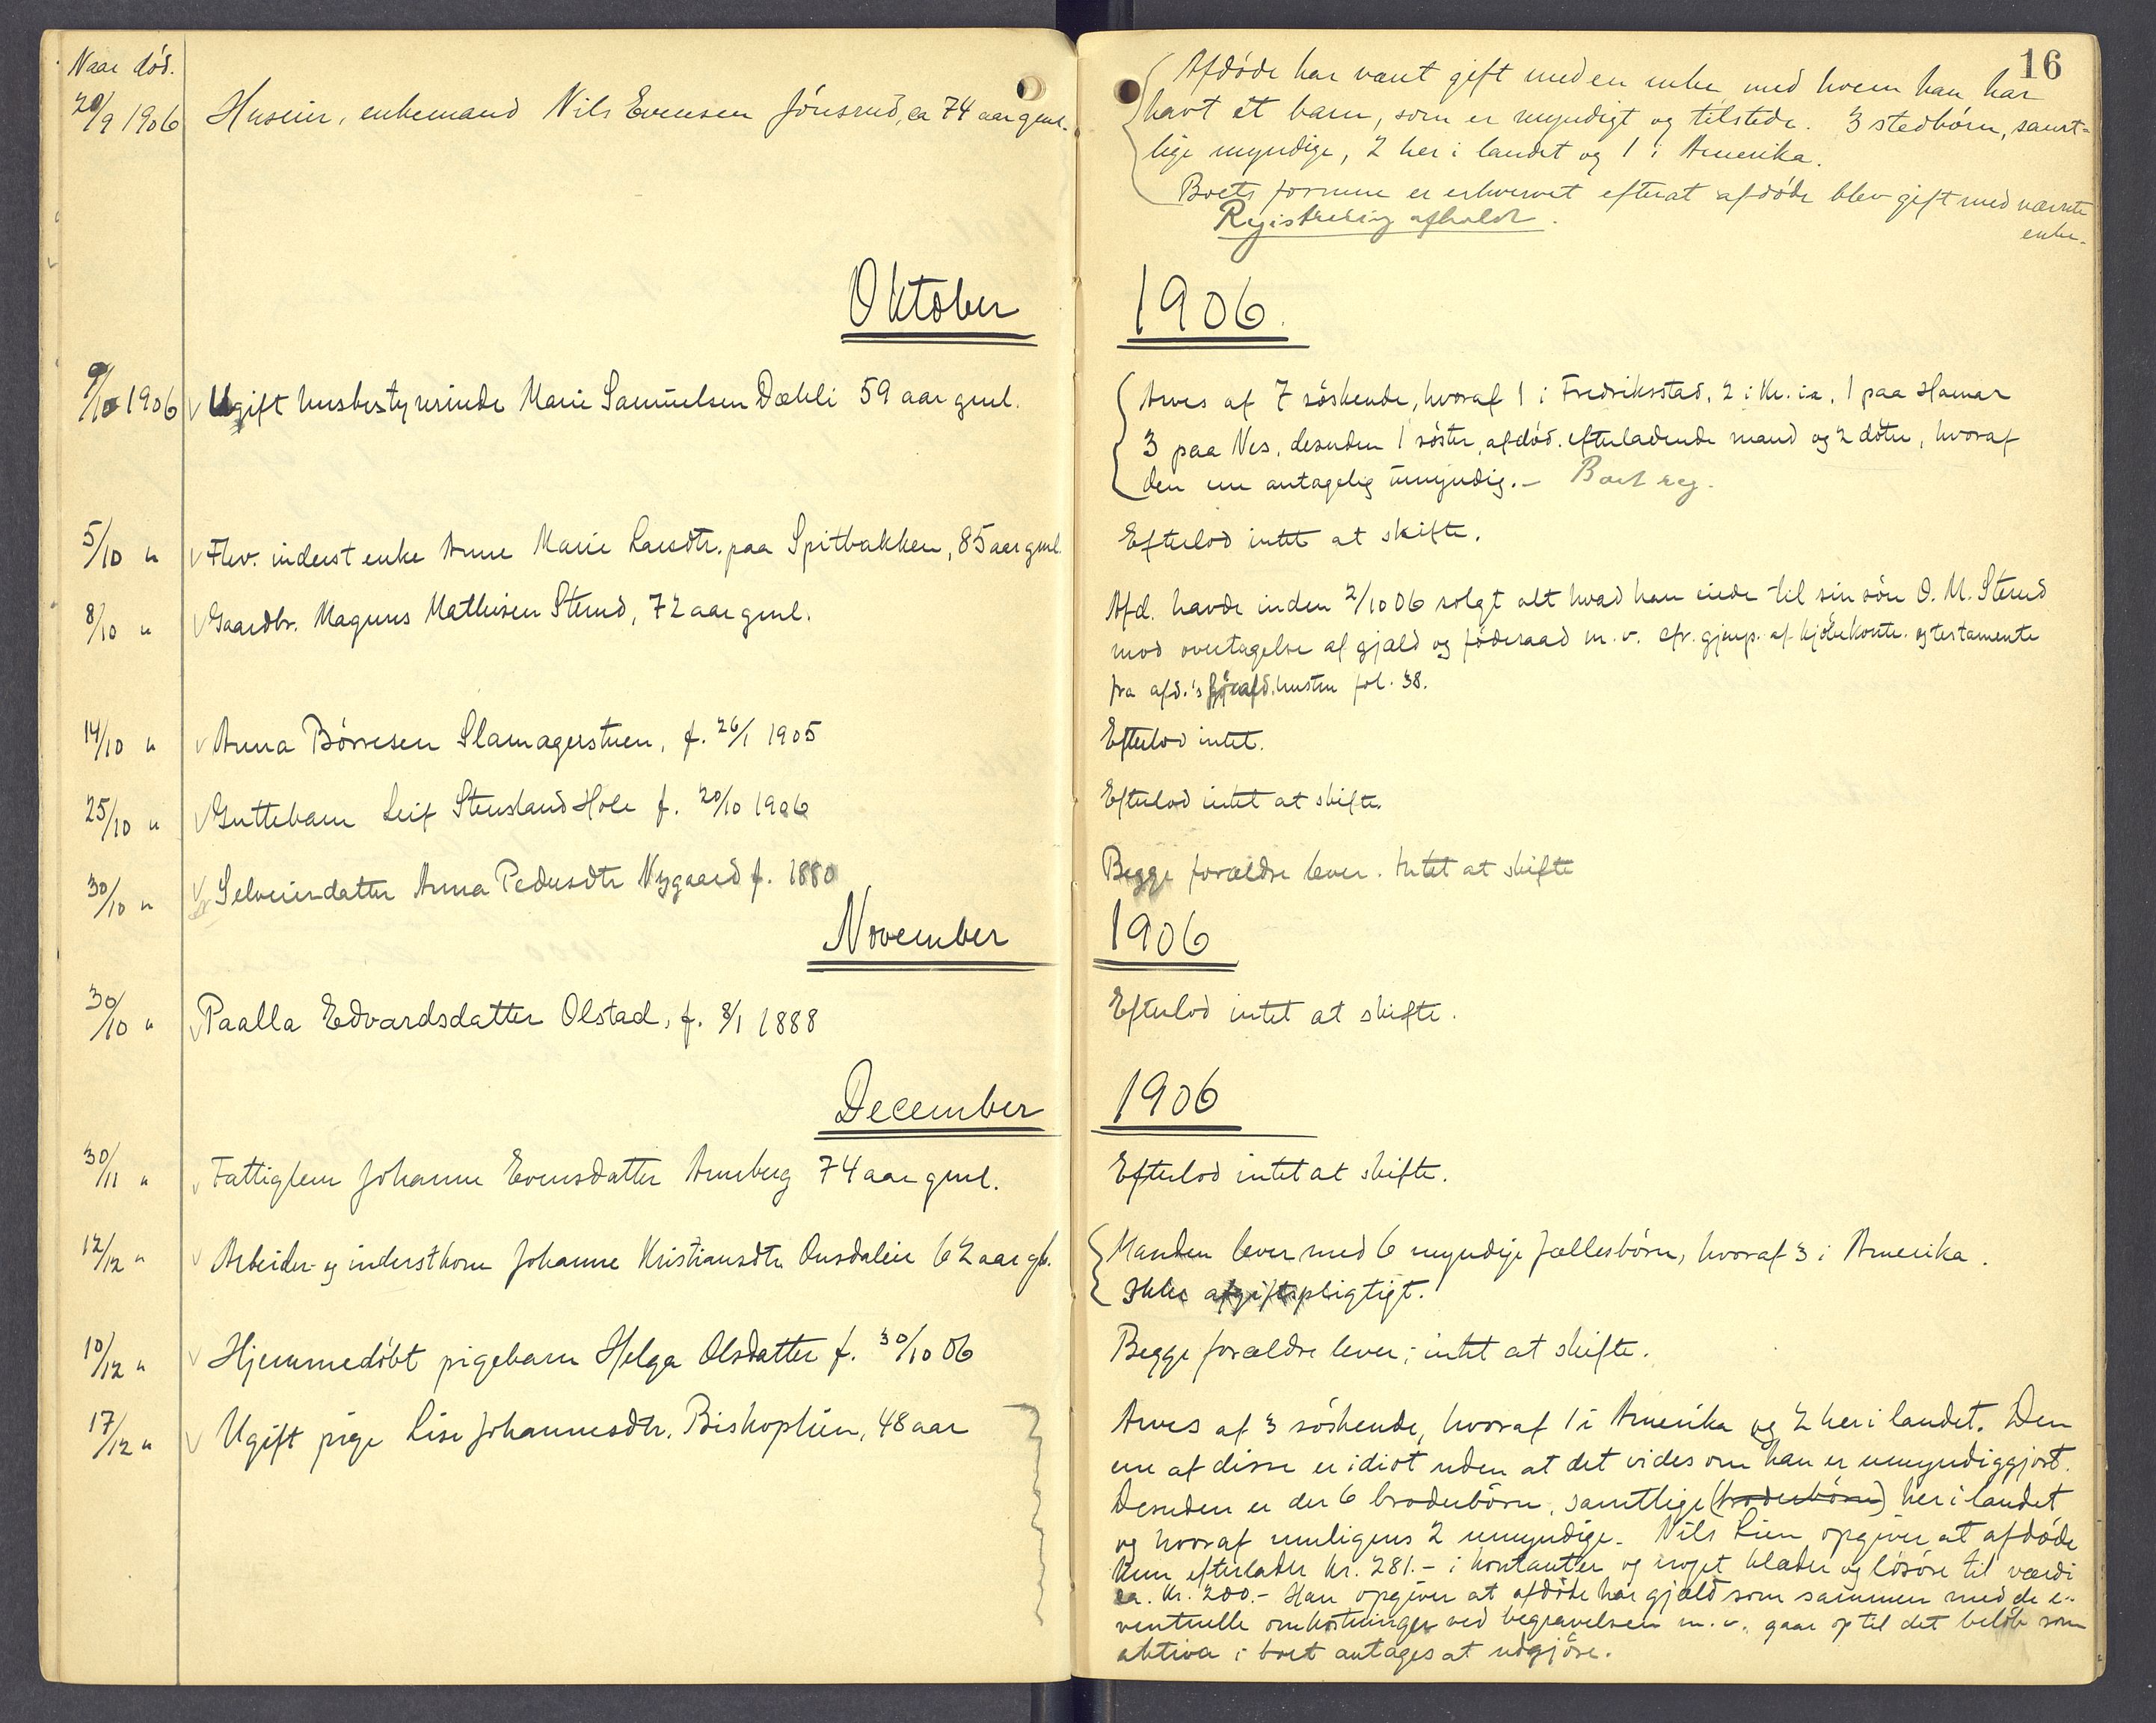 Naar död.
20/9 1906 Huseier, enkemand Nils Evensen Jönsrud, ca 74 aar gml.
Oktober
9/10 1906 Ugift husbestyrerinde Marie Samuelsen Dæhli 59 aar gml.
5/10 " Flev. inderst enke Anne Marie Larsdtr. paa Spitbakken, 85 aar gml.
8/10 " Gaardbr. Magnus Mathisen Sterud, 72 aar gml.
14/10 " Anna Börresen Slamagerstuen, f. 26/1 1905
25/10 " Guttebarn Leif Stensland Hole f. 20/10 1906
30/10 " Selveierdatter Anna Pedersdtr Nygaard f. 1880
November
30/10 " Paalla Edvardsdatter Olstad, f. 3/1 1888
December
30/11 " Fattiglem Johanne Evensdatter Arnberg 74 aar gml.
12/12 " Arbeider- og inderstkone Johanne Kristiansdtr Onsdalein 62 aar gl.
10/12 " Hjemmedöbt pigebarn Helga Olsdatter f. 30/10 06
17/12 " Ugift pige Lise Johannesdtr. Bishoplien, 48 aar
16
Afdöde har været gift med en enke med hvem han har
havt et barn, som er myndigt og tilstede. 3 stedbörn, samt-
lige myndige, 2 her i landet og 1 i Amerika.
Boets formue er erhvervet efterat afdöde blev gift med nævnte
enke.
Registrering afholdt.
1906.
Arves af 7 söskende, hvoraf 1 i Fredriksstad, 2 i Kr.ia, 1 paa Hamar
3 paa Nes, desuden 1 söster, afdöd, efterladende mand og 2 döttre, hvoraf
den ene antagelig umyndig. - Boet reg.
Efterlod intet at skifte.
Afd. havde inden 2/10 06 solgt alt hvad han eiede til sin sön O. M. Sterud
mod overtagelse af gjæld og föderaad m. v. cfr. gjenp. af kjöbekontr. og testamente
fra afd.'s förafd. hustru fol. 38.
Efterlod intet.
Efterlod intet at skifte.
Begge forældre lever. Intet at skifte
1906
Efterlod intet at skifte.
1906
Efterlod intet at skifte.
Manden lever med 6 myndige fællesbörn, hvoraf 3 i Amerika.
Ikke afgiftspligtigt.
Begge forældre lever; intet at skifte.
Arves af 3 söskende, hvoraf 1 i Amerika og 2 her i landet. Den
ene af disse er idiot uden at det vides om han er umyndiggjort.
Desuden er der 6 broderbörn, samtlige (broderbörn) her i landet
og hvoraf muligens 2 umyndige. Nils Lien opgiver at afdöde
kun efterlader kr. 281.- i kontanter og noget klæder og lösöre til værdi
ca. kr. 200.- Han opgiver at afdöde har gjæld som sammen med de e-
ventuelle omkostninger ved begravelsen m. v. gaar op til det belöb som
aktiva i boet antages at udgjöre.